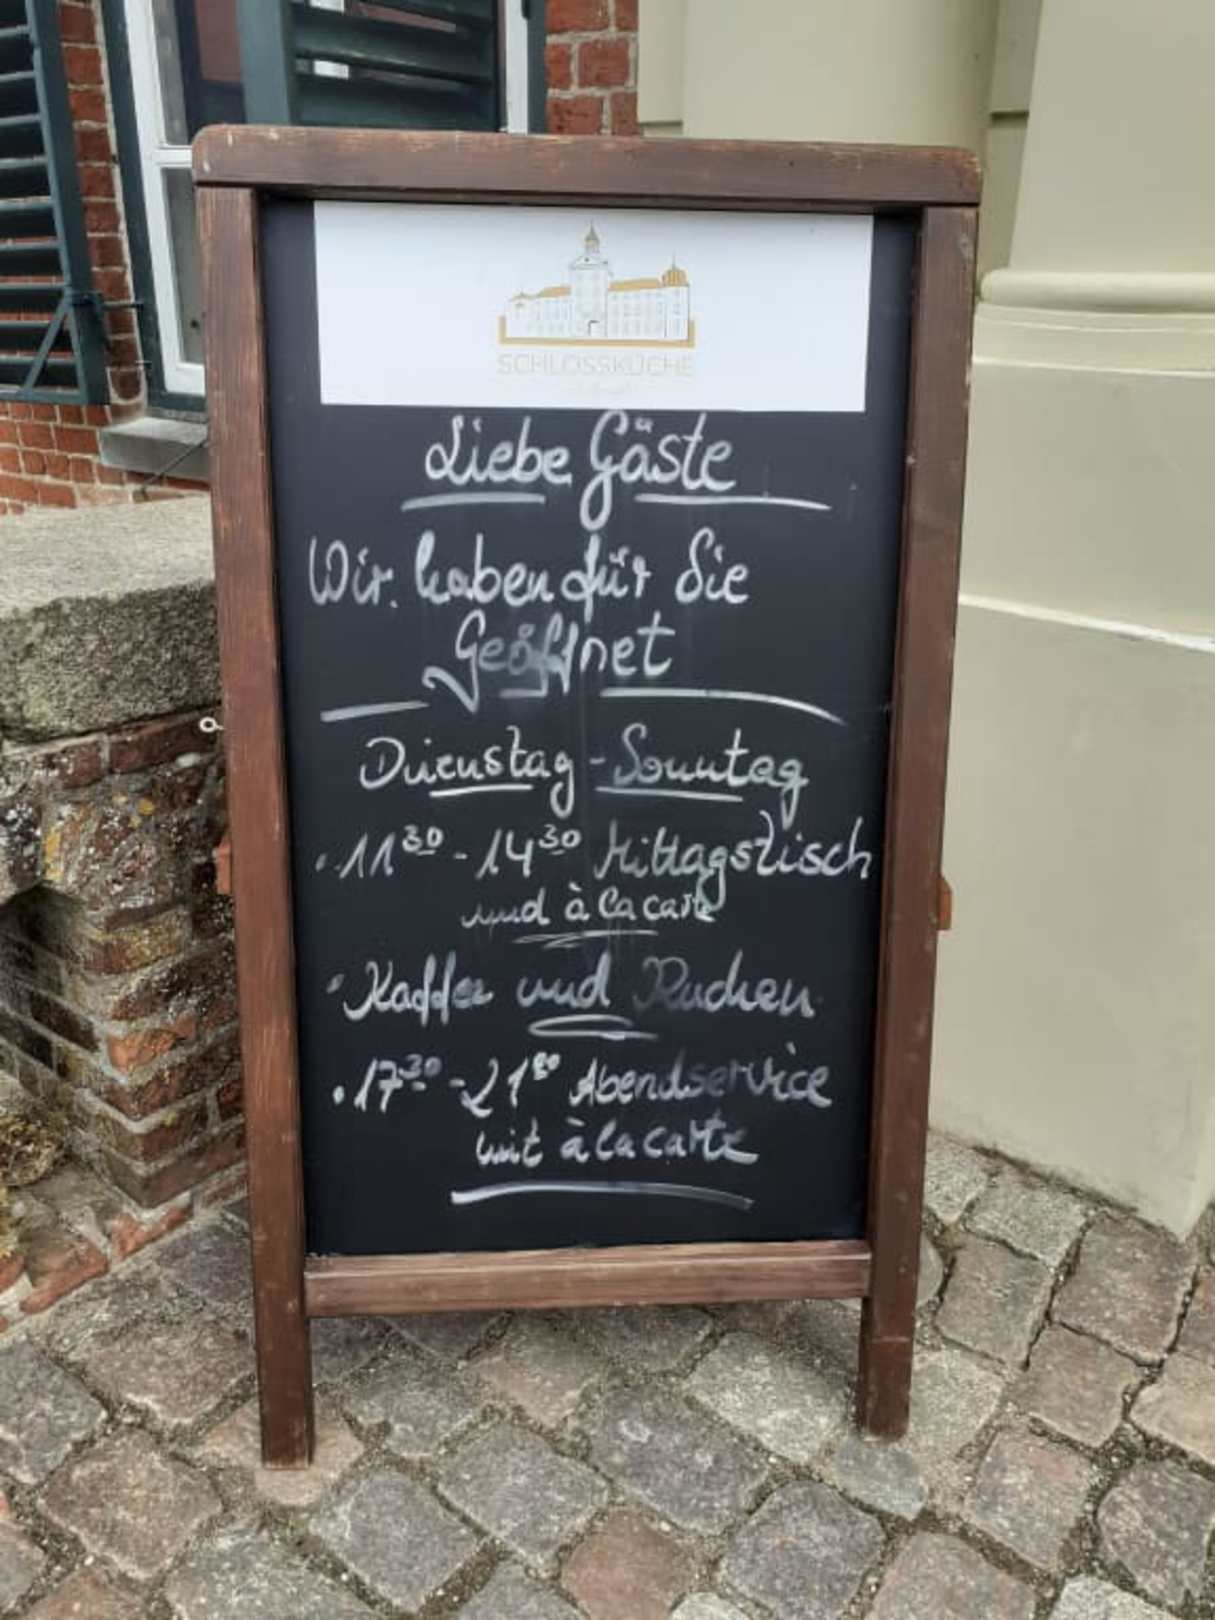 SCHLOSSKÜCHE
Liebe Gäste
Wir haben für Sie
Geöffnet
Dienstag - Sonntag
· 11³⁰ - 14³⁰ Mittagstisch
und à la carte
· Kaffee und Kuchen
· 17³⁰ - 21⁰⁰ Abendservice
mit à la carte